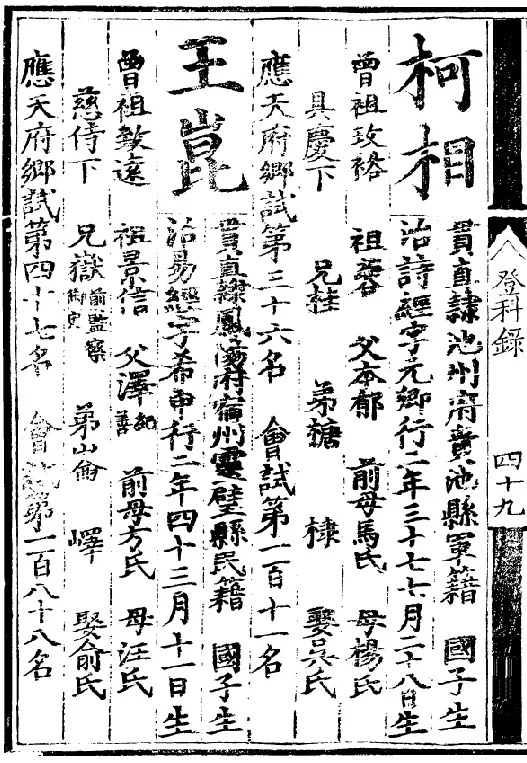 登科錄
四十九
柯相
貫直隸池州府貴池縣軍籍 國子生
治詩經字元卿行二年三十七六月二十八日生
曾祖玫 祖 父本 前母馬氏 母楊氏
具慶下 兄桂 弟 棣 娶吳氏
應天府鄉試第三十六名 會試第一百十一名
王崑
貫直隸鳳陽府宿州靈璧縣民籍 國子生
治易經字希申行二年四十三月十一日生
曾祖致遠 祖景信 父澤 前母方氏 母汪氏
慈侍下 兄嶽前監察御史 弟山 崙 嶧 娶俞氏
應天府鄉試第四十七名 會試第一百八十八名